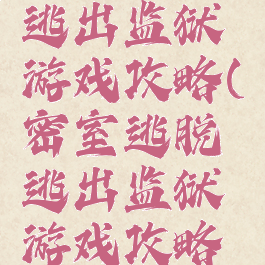 逃出监狱
游戏攻略(
密室逃脱
逃出监狱
游戏攻略